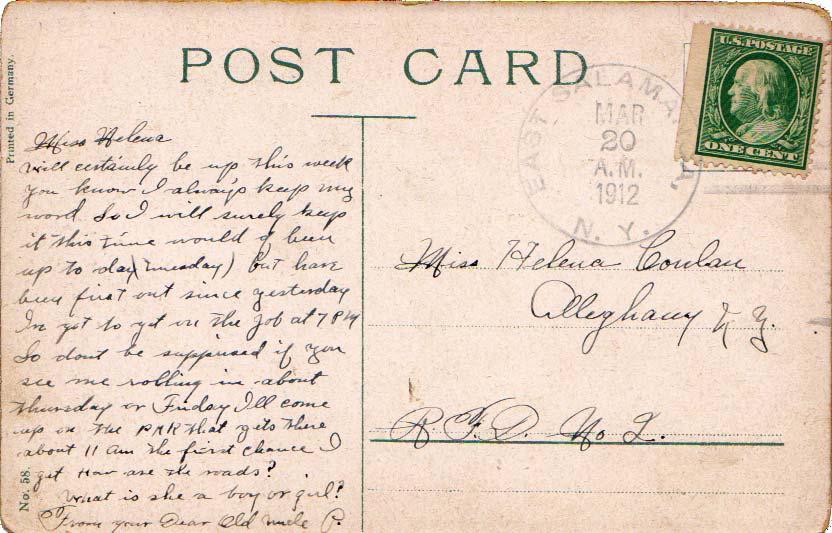 POST CARD
Printed in Germany.
No. 58.
U.S. POSTAGE
ONE CENT
EAST SALAMA
MAR
20
A.M.
1912
N. Y.
Miss Helena
will certainly be up this week
you know I always keep my
word. So I will surely keep
it this time would of been
up to day (Tuesday) but have
been first out since yesterday
Ive got to get on the job at 7 PM
So dont be suppirsed if you
see me rolling in about
Thursday or Friday I'll come
up on the PRR that gets there
about 11 am the first chance I
get How are the roads?
What is she a boy or girl?
From your Dear Old uncle P.
Miss Helena Conlan
Alleghany N. Y.
R. F. D. No 2.